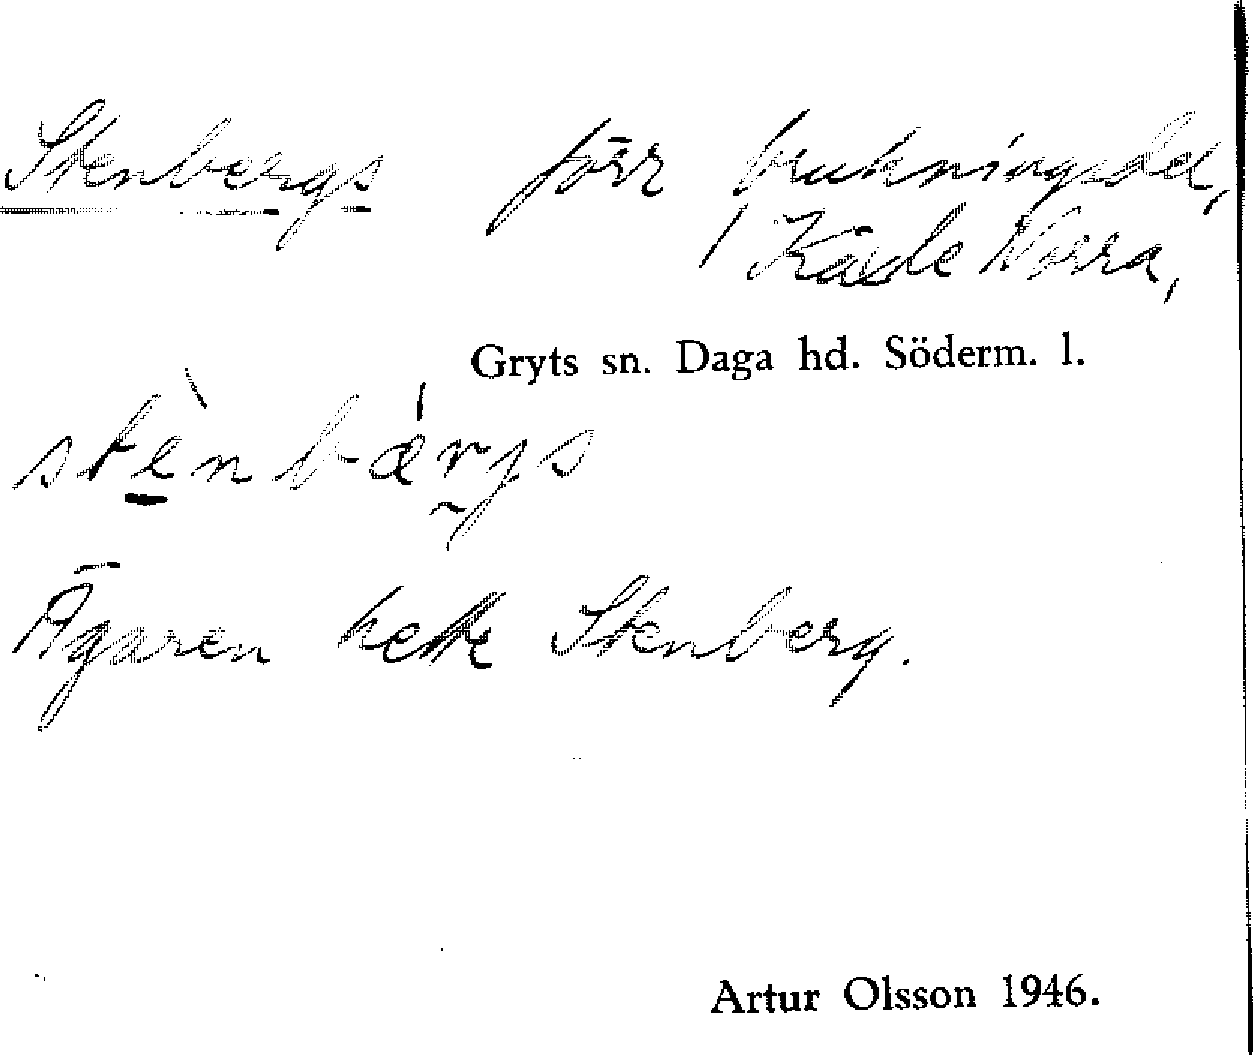 Stenbergs förr brukningsdel,
i Kåsle Norra,
Gryts sn. Daga hd. Söderm. l.
stènbærgs
Ägaren hette Stenberg.
Artur Olsson 1946.